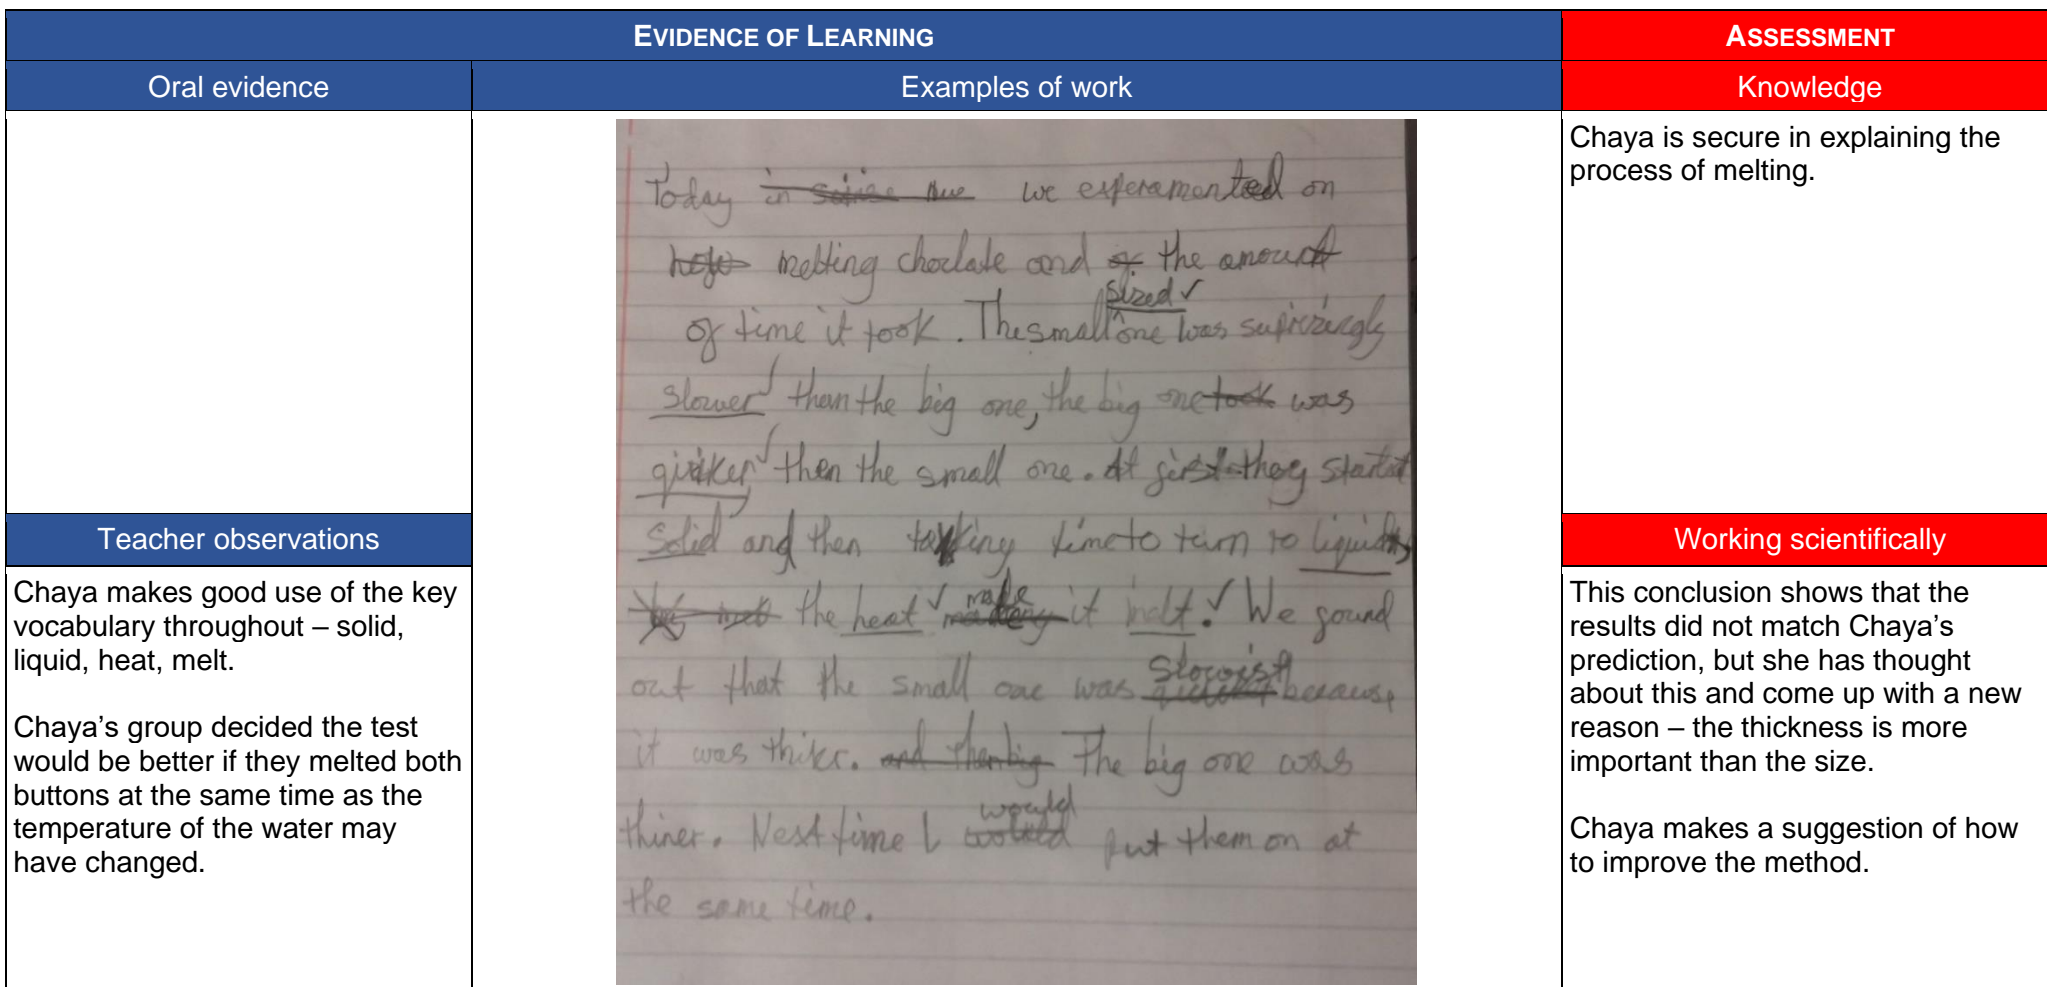 EVIDENCE OF LEARNING
ASSESSMENT
Oral evidence
Examples of work
Knowledge
Today in we experamented on
how melting choclate and of the amount
sized ✓
of time it took. The small ^ one was suprizingly
slower ✓ than the big one, the big one took was
quiker ✓ then the small one. At first they started
solid and then taking time to turn to liquid
made
the heat ✓ it melt ✓. We found
slowist
out that the small one was because
it was thiker. and then big The big one was
would
thiner. Next time I put them on at
the same time.
Chaya is secure in explaining the
process of melting.
Teacher observations
Working scientifically
Chaya makes good use of the key
vocabulary throughout – solid,
liquid, heat, melt.
Chaya's group decided the test
would be better if they melted both
buttons at the same time as the
temperature of the water may
have changed.
This conclusion shows that the
results did not match Chaya's
prediction, but she has thought
about this and come up with a new
reason – the thickness is more
important than the size.
Chaya makes a suggestion of how
to improve the method.